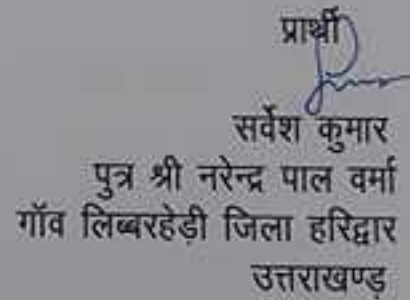 प्रार्थी
सर्वेश कुमार
पुत्र श्री नरेन्द्र पाल वर्मा
गॉव लिब्बरहेड़ी जिला हरिद्वार
उत्तराखण्ड